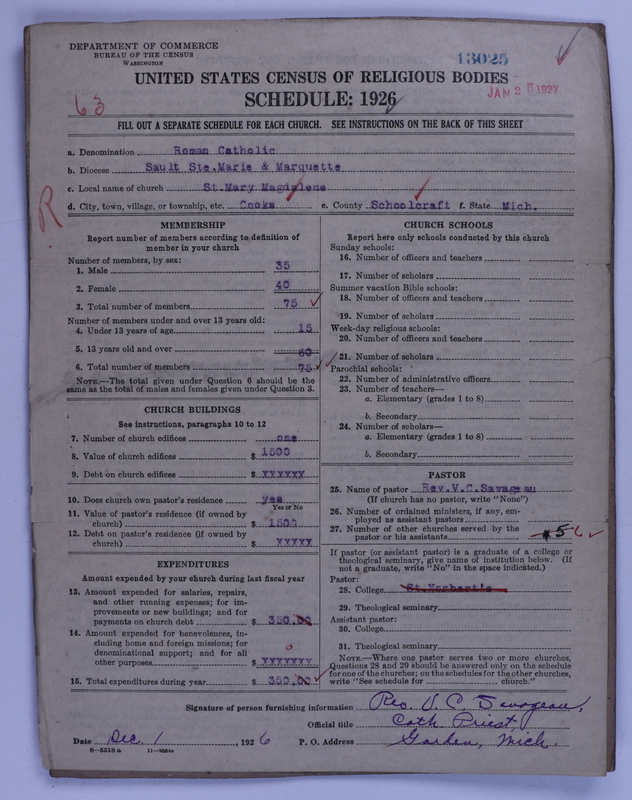 DEPARTMENT OF COMMERCE
BUREAU OF THE CENSUS
WASHINGTON
13025
UNITED STATES CENSUS OF RELIGIOUS BODIES
SCHEDULE: 1926
JAN 25 1927
63
FILL OUT A SEPARATE SCHEDULE FOR EACH CHURCH. SEE INSTRUCTIONS ON THE BACK OF THIS SHEET
a. Denomination Roman Catholic
b. Diocese Sault Ste.Marie & Marquette
c. Local name of church St.Mary Magdalene
d. City, town, village, or township, etc. Cooks e. County Schoolcraft f. State Mich.
R
MEMBERSHIP
Report number of members according to definition of
member in your church
Number of members, by sex:
1. Male 35
2. Female 40
3. Total number of members 75
Number of members under and over 13 years old:
4. Under 13 years of age 15
5. 13 years old and over 60
6. Total number of members 75
NOTE.—The total given under Question 6 should be the
same as the total of males and females given under Question 3.
CHURCH BUILDINGS
See instructions, paragraphs 10 to 12
7. Number of church edifices one
8. Value of church edifices $ 1500
9. Debt on church edifices $ XXXXXX
10. Does church own pastor's residence yes
Yes or No
11. Value of pastor's residence (if owned by
church) $ 1500
12. Debt on pastor's residence (if owned by
church) $ XXXXX
EXPENDITURES
Amount expended by your church during last fiscal year
13. Amount expended for salaries, repairs,
and other running expenses; for im-
provements or new buildings; and for
payments on church debt $ 350.00
14. Amount expended for benevolences, in-
cluding home and foreign missions; for
denominational support; and for all
other purposes $ XXXXXXX
0
15. Total expenditures during year $ 350.00
CHURCH SCHOOLS
Report here only schools conducted by this church
Sunday schools:
16. Number of officers and teachers
17. Number of scholars
Summer vacation Bible schools:
18. Number of officers and teachers
19. Number of scholars
Week-day religious schools:
20. Number of officers and teachers
21. Number of scholars
Parochial schools:
22. Number of administrative officers
23. Number of teachers—
a. Elementary (grades 1 to 8)
b. Secondary
24. Number of scholars—
a. Elementary (grades 1 to 8)
b. Secondary
PASTOR
25. Name of pastor Rev.V.C.Savageau
(If church has no pastor, write "None")
26. Number of ordained ministers, if any, em-
ployed as assistant pastors
27. Number of other churches served by the
pastor or his assistants 5 6
If pastor (or assistant pastor) is a graduate of a college or
theological seminary, give name of institution below. (If
not a graduate, write "No" in the space indicated.)
Pastor:
28. College St.Norbert's
29. Theological seminary
Assistant pastor:
30. College
31. Theological seminary
NOTE.—Where one pastor serves two or more churches,
Questions 28 and 29 should be answered only on the schedule
for one of the churches; on the schedules for the other churches,
write "See schedule for church."
Signature of person furnishing information Rev. V. C. Savageau,
Official title Cath Priest,
Date Dec. 1, 1926 P. O. Address Garden, Mich.
8—5518 a 11—9054a